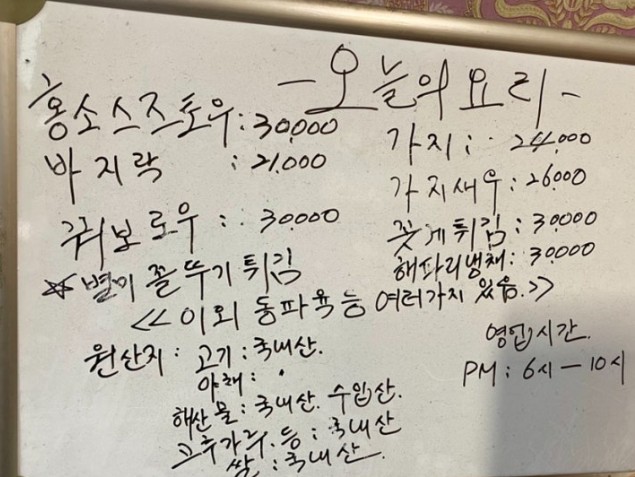 - 오늘의 요리 -
홍소스즈토우 : 30.000
바지락 : 21.000
꿔보로우 : 30.000
☆ 별미 쫄뚜기 튀김
가지 : 24.000
가지새우 : 26.000
꽃게튀김 : 30.000
해파리냉채 : 30.000
<< 이외 동파육 등 여러가지 있음. >>
원산지 : 고기 : 국내산.
야채 : .
해산물 : 국내산. 수입산.
고추가루. 등 : 국내산
쌀 : 국내산
영업시간.
PM : 6시 - 10시